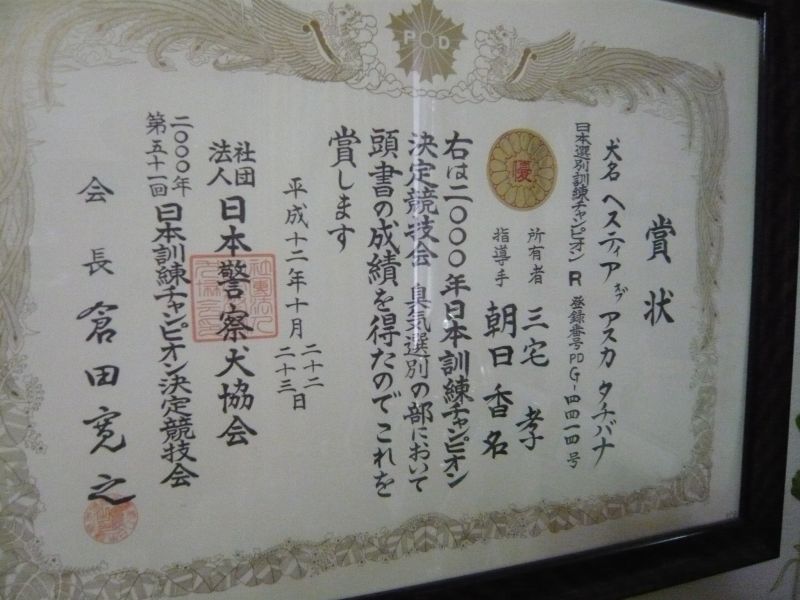 PD
賞状
犬名 ヘスティア オブ アスカ タチバナ
日本選別訓練チャンピオン R 登録番号PDG-四四一四号
優
所有者 三宅 孝
指導手 朝日香名
右は二〇〇〇年日本訓練チャンピオン
決定競技会 臭気選別の部において
頭書の成績を得たのでこれを
賞します
平成十二年十月二十二 二十三日
社団法人 日本警察犬協会
二〇〇〇年 第五十一回 日本訓練チャンピオン決定競技会
会長 倉田寛之